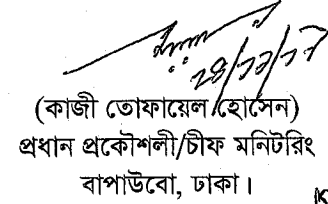 ২৪/১২/১৭
(কাজী তোফায়েল হোসেন)
প্রধান প্রকৌশলী/চীফ মনিটরিং
বাপাউবো, ঢাকা।